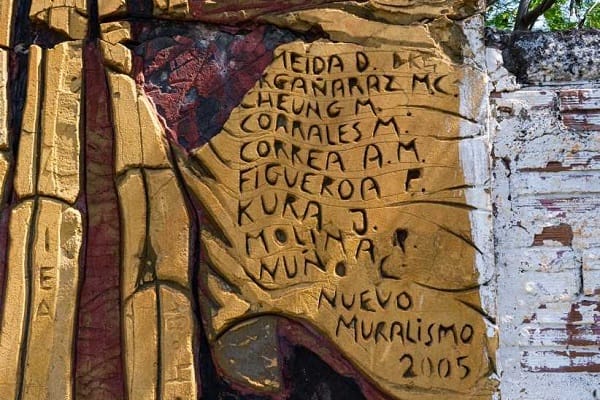 MEIDA D.
RGAÑARAZ MC.
CHEUNG M.
CORRALES M.
CORREA A.M.
FIGUEROA F.
KURA J.
MOLINA R.
NUÑO C.
NUEVO
MURALISMO
2005
IEA